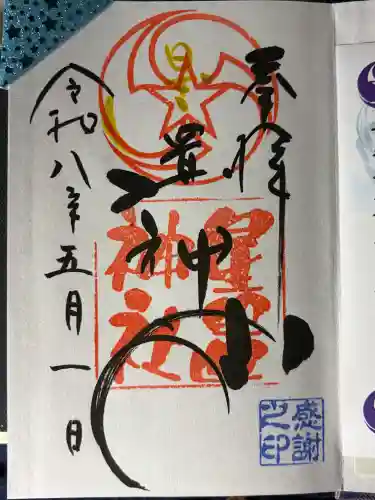 奉拝
星置
神社
令和八年五月一日
感謝
之印